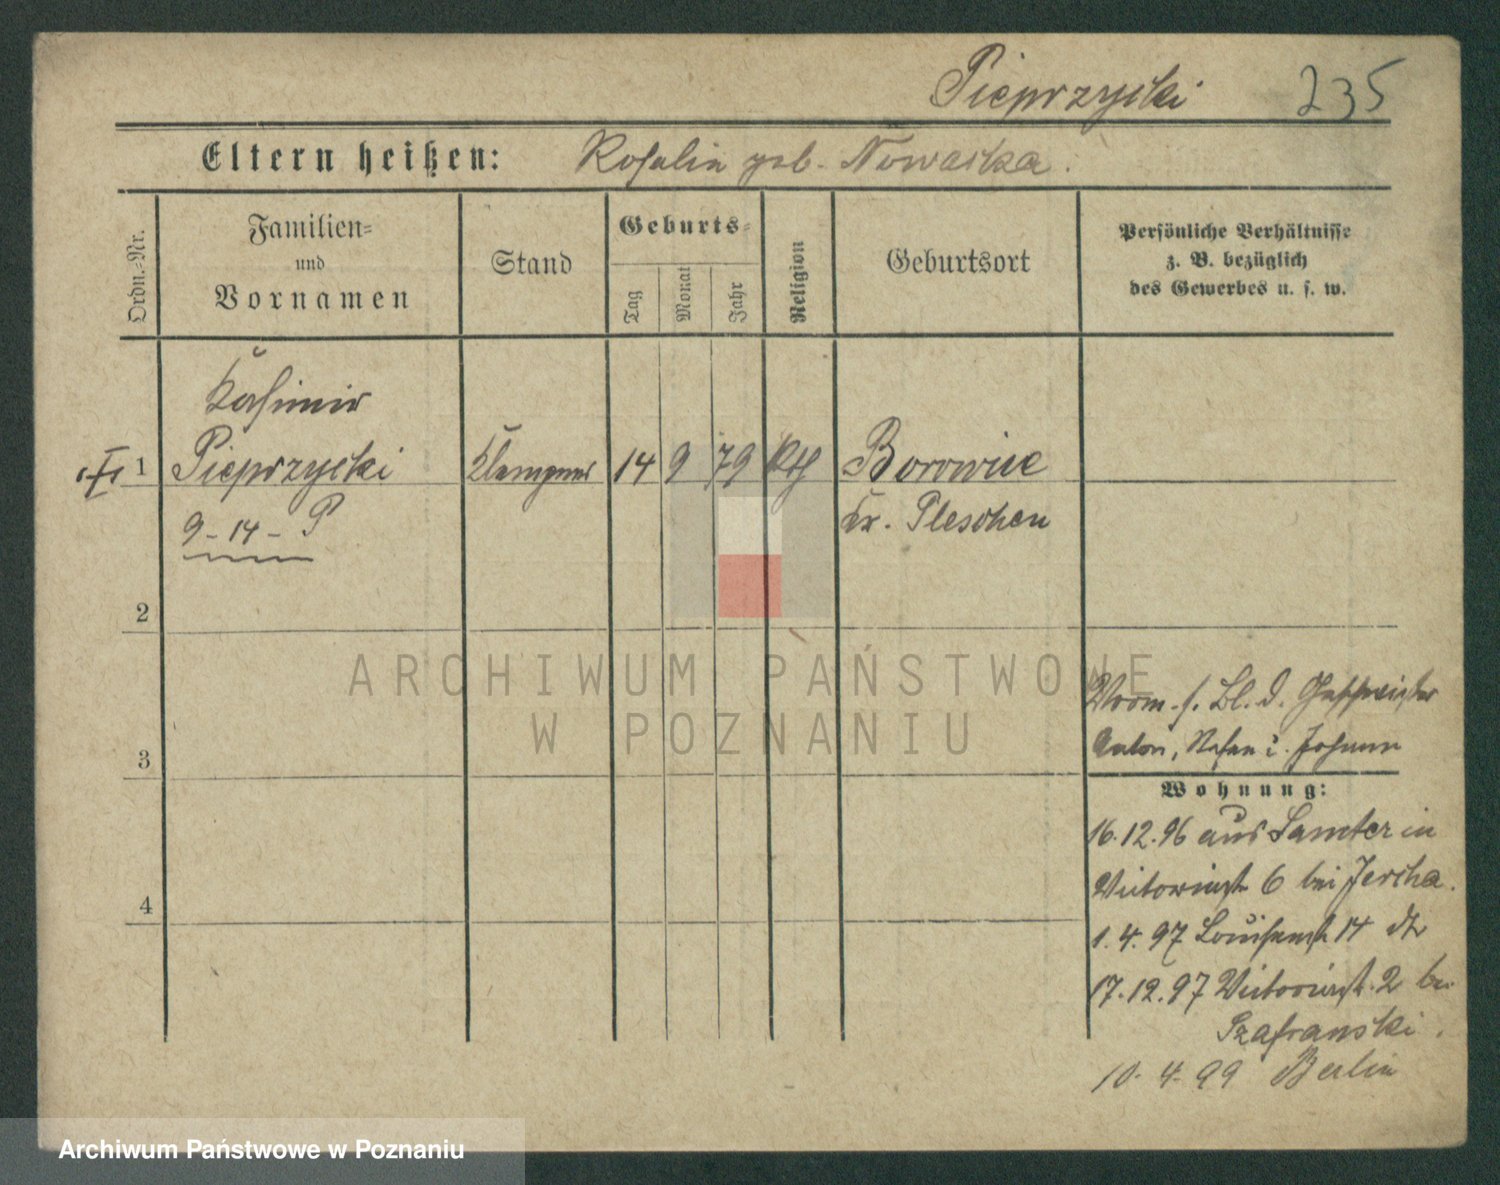 Pieprzycki 235
Eltern heißen: Rosalia geb. Nowacka.
Ordn.-Nr.
Familien-
und
Vornamen
Stand
Geburts-
Tag
Monat
Jahr
Religion
Geburtsort
Persönliche Verhältnisse
z. B. bezüglich
des Gewerbes u. s. w.
Kasimir
1 Pieprzycki Klempner 14 9 79 Kth Borowice
9-14- P
Kr. Pleschen
2
ARCHIWUM PAŃSTWOWE
W POZNANIU
3
4
Vorm. s. Bl. d. Geschwister
Anton, Stefan u. Johann
Wohnung:
16.12.96 aus Samter in
Victoriast 6 bei Jercha.
1.4.97 Louisenst 14
17.12.97 Victoriast. 2 bei
Szafranski.
10.4.99 Berlin
Archiwum Państwowe w Poznaniu